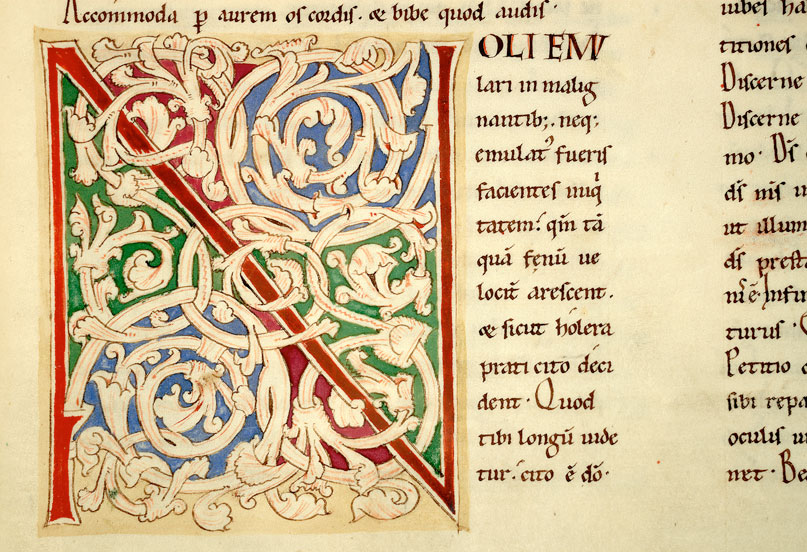 Accommoda ꝑ aurem os cordis. & bibe quod audis.
NOLI EMV
lari in malig
nantib;. neq;
emulat᾽ fueris
facientes iniq
tatem. qm̄ tā
quā fenū ue
locit̄ arescent.
& sicut holera
prati cito deci
dent. Quod
tibi longū uide
tur. cito ē dō.
iubes ha
titiones
Discerne
Discerne
mo. Ds̄
ds̄ nis
ut illum
ds̄ presta
turus.
Petitio
sibi repa
oculis
net. Be